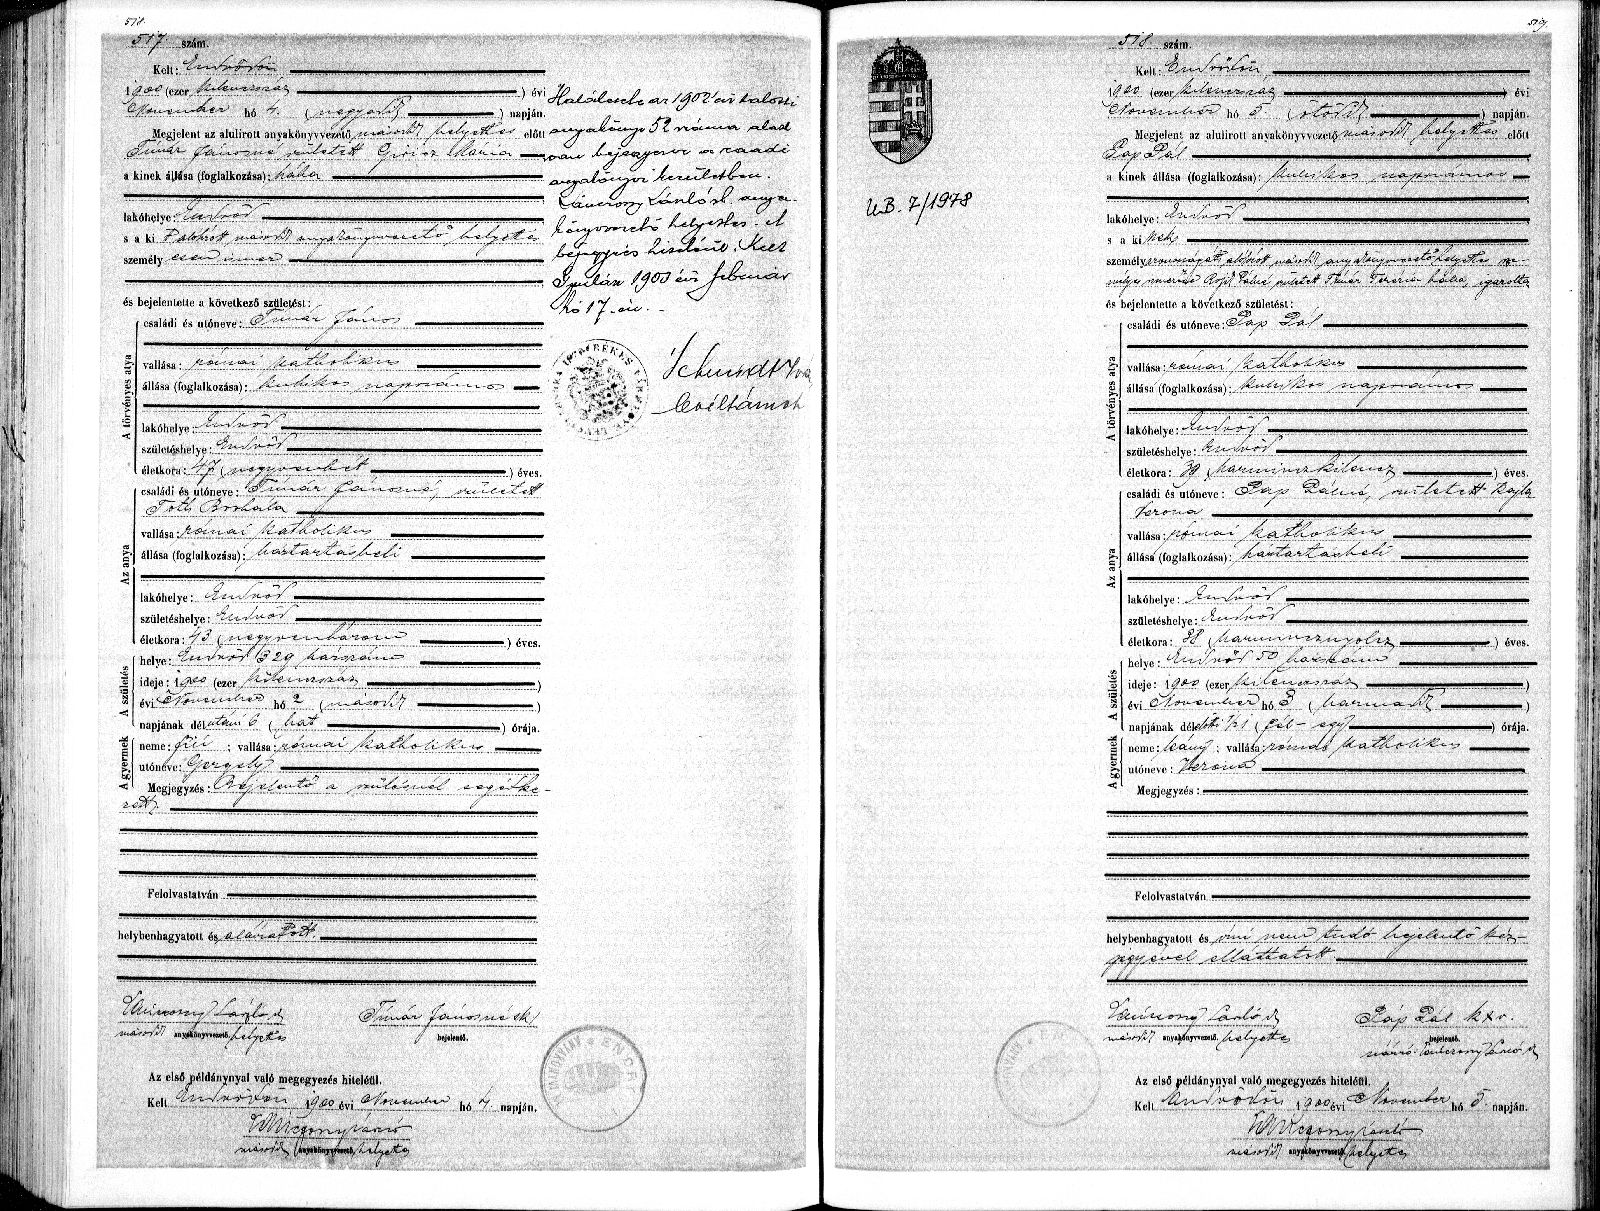 518.
517 szám.
Kelt: Endrődön,
1900 (ezer kilencszáz ) évi
November hó 4. (negyedik ) napján.
Megjelent az alulirott anyakönyvvezető második helyettes előtt
Tímár Jánosné született Giricz Mária
a kinek állása (foglalkozása): bába
lakóhelye: Endrőd
s a ki alulírott második anyakönyvvezető helyettes
személyesen ismer
és bejelentette a következő születést:
A törvényes atya
családi és utóneve: Tímár János
vallása: római katholikus
állása (foglalkozása): kubikos napszámos
lakóhelye: Endrőd
születéshelye: Endrőd
életkora: 47 (negyvenhét ) éves.
Az anya
családi és utóneve: Tímár Jánosné, született
Tóth Borbála
vallása: római katholikus
állása (foglalkozása): háztartásbeli
lakóhelye: Endrőd
születéshelye: Endrőd
életkora: 43 (negyvenhárom ) éves.
A születés
helye: Endrőd 329 házszám
ideje: 1900 (ezer kilencszáz )
évi November hó 2 (második )
napjának délutáni 6 (hat ) órája.
A gyermek
neme: fiú; vallása: római katholikus
utóneve: Gergely
Megjegyzés: Bejelentő a szülésnél segédke-
zett
Felolvastatván
helybenhagyatott és aláíratott.
Lánczony László
második anyakönyvvezető helyettes
Tímár Jánosné sk
bejelentő.
Az első példánynyal való megegyezés hiteléül.
Kelt Endrődön 1900 évi November hó 4 napján.
második anyakönyvvezető helyettes
Halálesete az 1902 évi halotti
anyakönyv 52 száma alatt
van bejegyezve a
anyakönyvi kerületben.
László anya-
könyvvezető helyettes. A
bejegyzés hiteléül. Kelt
Gyulán 1903 évi február
hó 17-én.
BÉKÉS
U.B. 7/1978
ENDRŐD
519.
518 szám.
Kelt: Endrődön,
1900 (ezer kilencszáz ) évi
November hó 5. (ötödik ) napján.
Megjelent az alulirott anyakönyvvezető második helyettes előtt
Pap Pál
a kinek állása (foglalkozása): kubikos napszámos
lakóhelye: Endrőd
s a kinek
személyazonosságát alulírott második anyakönyvvezető helyettes sze-
mélyes ismerőse született Tímár Terézia bába igazolta
és bejelentette a következő születést:
A törvényes atya
családi és utóneve: Pap Pál
vallása: római katholikus
állása (foglalkozása): kubikos napszámos
lakóhelye: Endrőd
születéshelye: Endrőd
életkora: 39 (harminczkilencz ) éves.
Az anya
családi és utóneve: Pap Pálné, született Rojta
Verona
vallása: római katholikus
állása (foglalkozása): háztartásbeli
lakóhelye: Endrőd
születéshelye: Endrőd
életkora: 38 (harmincznyolcz ) éves.
A születés
helye: Endrőd 50 házszám
ideje: 1900 (ezer kilencszáz )
évi November hó 3 (harmadik )
napjának délelőtti 1/2 1 (fél-egy ) órája.
A gyermek
neme: leány; vallása: római katholikus
utóneve: Verona
Megjegyzés:
Felolvastatván
helybenhagyatott és írni nem tudó bejelentő kéz-
jegyével elláttatott.
Lánczony László
második anyakönyvvezető helyettes
Pap Pál k+v.
bejelentő.
Az első példánynyal való megegyezés hiteléül.
Kelt Endrődön 1900 évi November hó 5. napján.
második anyakönyvvezető helyettes